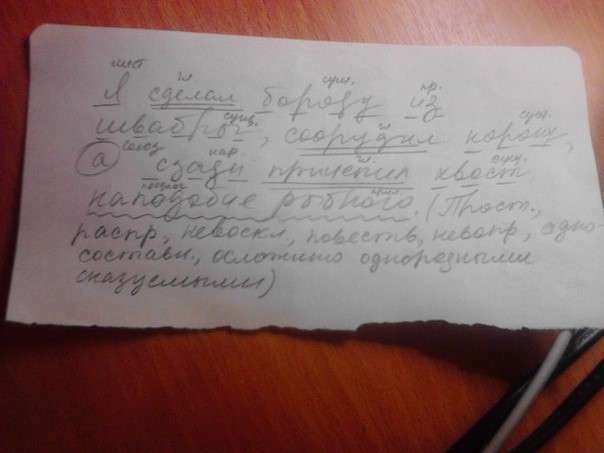 мест. гл. сущ. пр.
Я сделал бороду из
сущ. гл. сущ.
швабры, соорудил корону,
союз нар. гл. сущ.
а сзади прицепил хвост
предлог прил.
наподобие рыбного. (Прост.,
распр., невоскл., повеств., невопр., одно-
составн., осложнено однородными
сказуемыми)